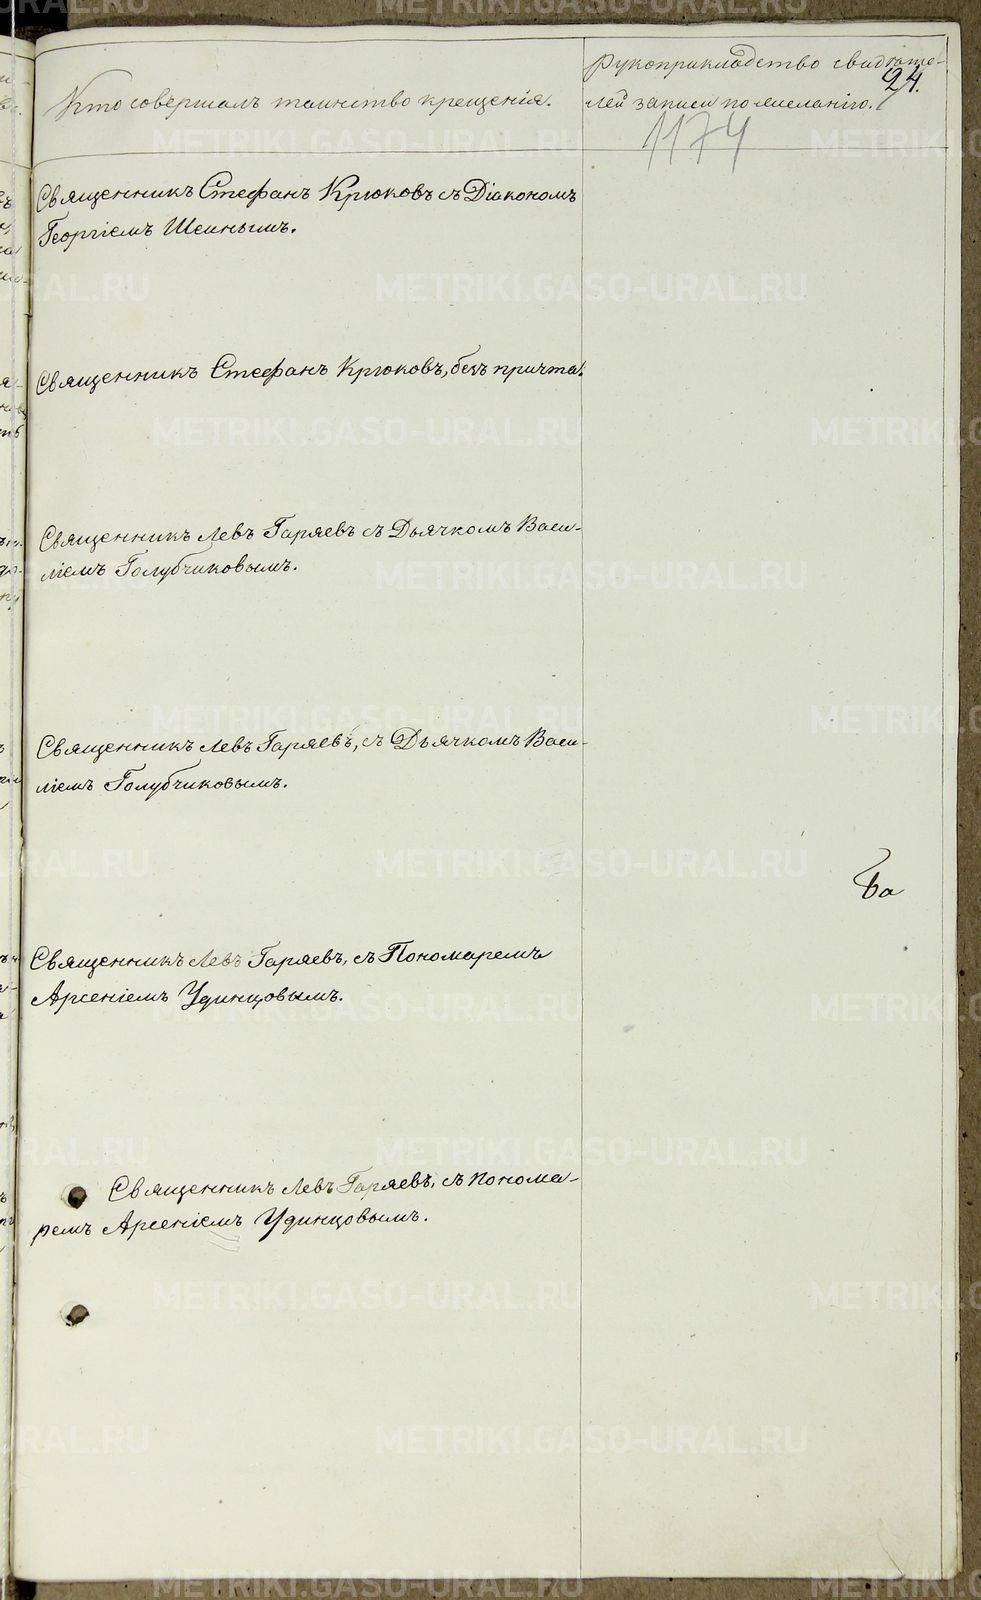 Кто совершалъ таинство крещенія.
Рукоприкладство свидѣте-
лей записи по желанію.
24.
1174
Священникъ Стефанъ Крюковъ съ Діакономъ
Георгіемъ Шеинымъ.
Священникъ Стефанъ Крюковъ, безъ причта.
Священникъ Левъ Гаряевъ съ Дьячкомъ Васи-
ліемъ Голубчиковымъ.
Священникъ Левъ Гаряевъ, съ Дьячкомъ Васи-
ліемъ Голубчиковымъ.
Священникъ Левъ Гаряевъ, съ Пономаремъ
Арсеніемъ Удинцовымъ.
Священникъ Левъ Гаряевъ, съ понома-
ремъ Арсеніемъ Удинцовымъ.
METRIKI.GASO-URAL.RU